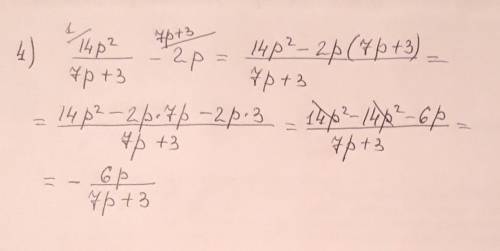 4) ¹/ 14p²/(7p+3) - ⁷ᵖ⁺³/ 2p = (14p² - 2p(7p+3))/(7p+3) =
= (14p² - 2p·7p - 2p·3)/(7p+3) = (14p² - 14p² - 6p)/(7p+3) =
= - 6p/(7p+3)